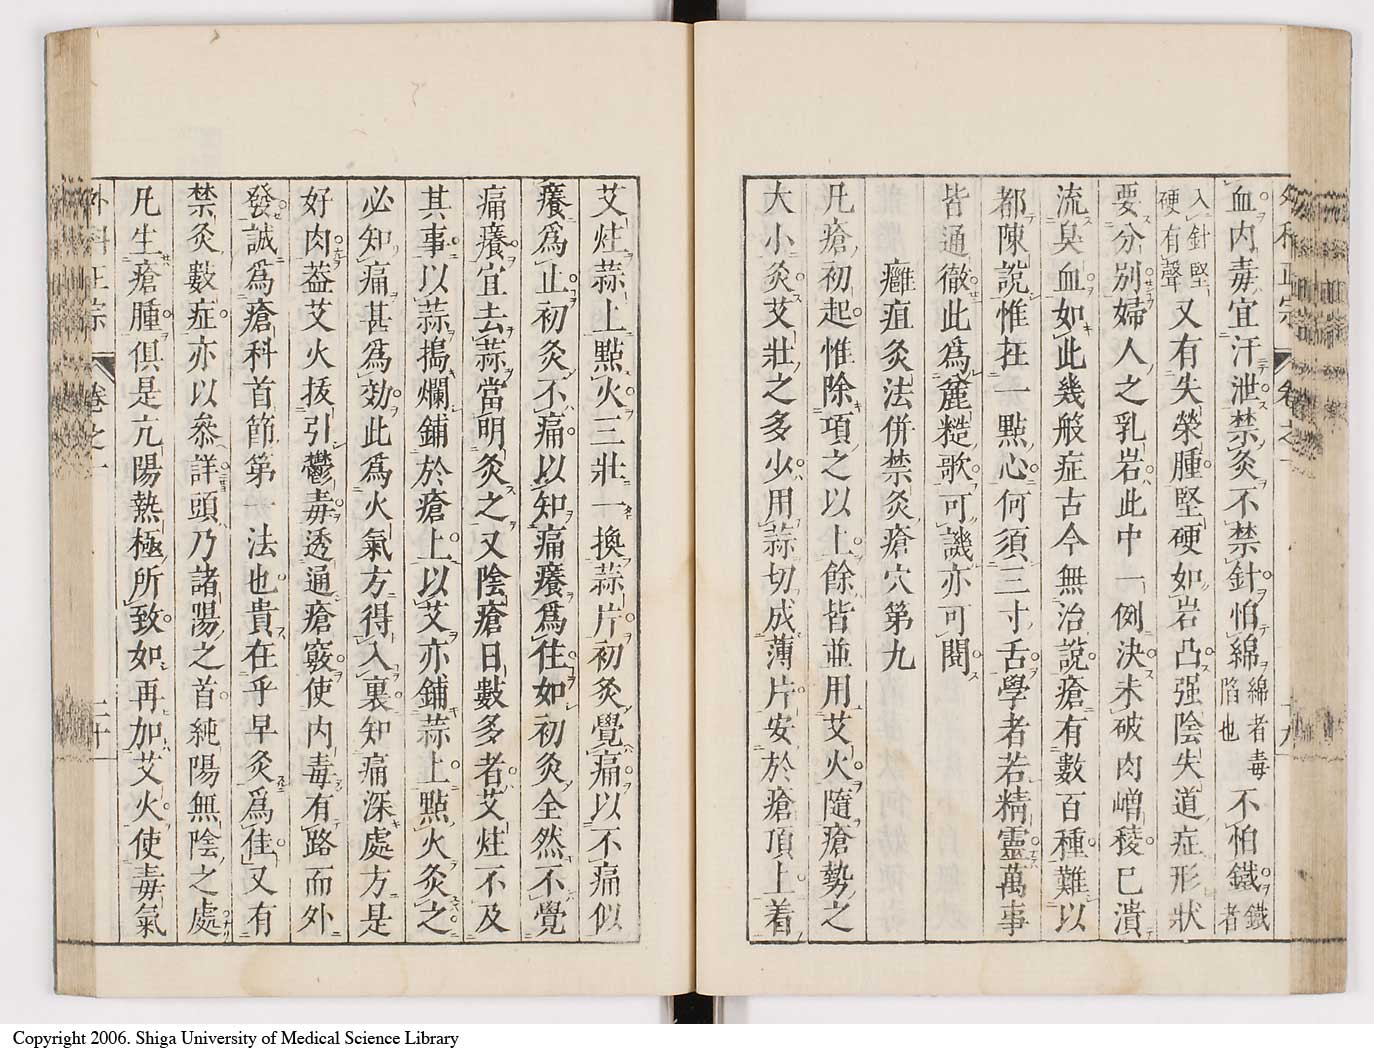 血内毒宜汗泄禁灸不禁針怕綿綿者毒陷也不怕鐵鐵者
入針堅硬有聲又有失榮腫堅硬如岩凸强陰失道症形狀
要分別婦人之乳岩此中一例決未破肉嶒稜巳潰
流臭血如此幾般症古今無治說瘡有數百種難以
都陳說惟在一點心何須三寸舌學者若精靈萬事
皆通徹此爲麄糙歌可譏亦可閱
癰疽灸法併禁灸瘡穴第九
凡瘡初起惟除項之以上餘皆並用艾火隨瘡勢之
大小灸艾壯之多少用蒜切成薄片安於瘡頂上着
艾炷蒜上點火三壯一換蒜片初灸覺痛以不痛似
癢爲止初灸不痛以知痛癢爲住如初灸全然不覺
痛癢宜去蒜當明灸之又陰瘡日數多者艾炷不及
其事以蒜搗爛鋪於瘡上以艾亦鋪蒜上點火灸之
必知痛甚爲効此爲火氣方得入裏知痛深處方是
好肉葢艾火拔引鬱毒透通瘡竅使内毒有路而外
發誠爲瘡科首節第一法也貴在乎早灸爲佳又有
禁灸數症亦以叅詳頭乃諸陽之首純陽無陰之處
凡生瘡腫俱是亢陽熱極所致如再加艾火使毒氣
外科正宗 卷之一 二十
Copyright 2006. Shiga University of Medical Science Library